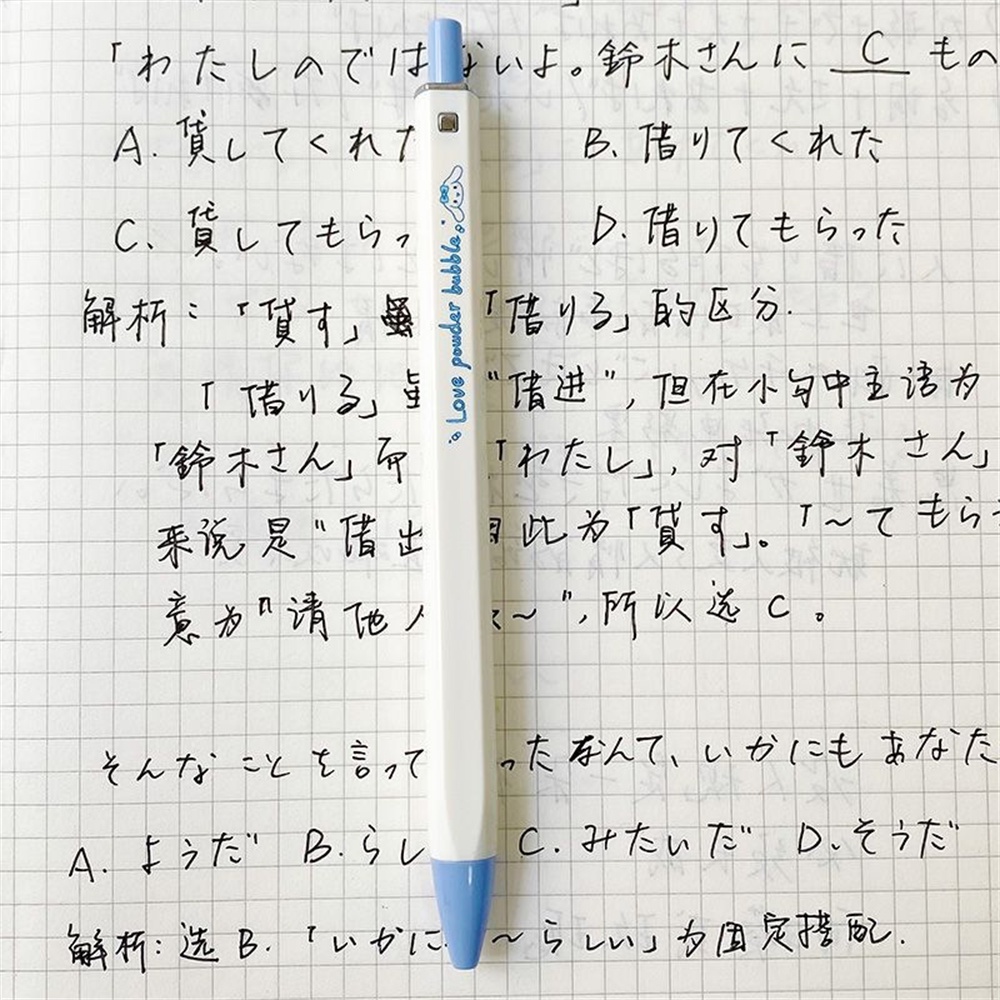 「わたしのでは ないよ。鈴木さんに C もの
A. 貸してくれた B. 借りてくれた
C. 貸してもらっ D. 借りてもらった
解析:「貸す」 「借りる」的区分.
「借りる」 "借进", 但在小句中主语为
「鈴木さん」而 「わたし」, 对「鈴木さん」
来说是"借出 因此为「貸す」。「~てもらう
意为"请他人 ~", 所以选 C。
Love powder bubble.
そんなことを言って ったなんて、いかにもあなた
A. ようだ B. らし C. みたいだ D. そうだ
解析: 选 B. 「いかに ~らしい」为固定搭配.